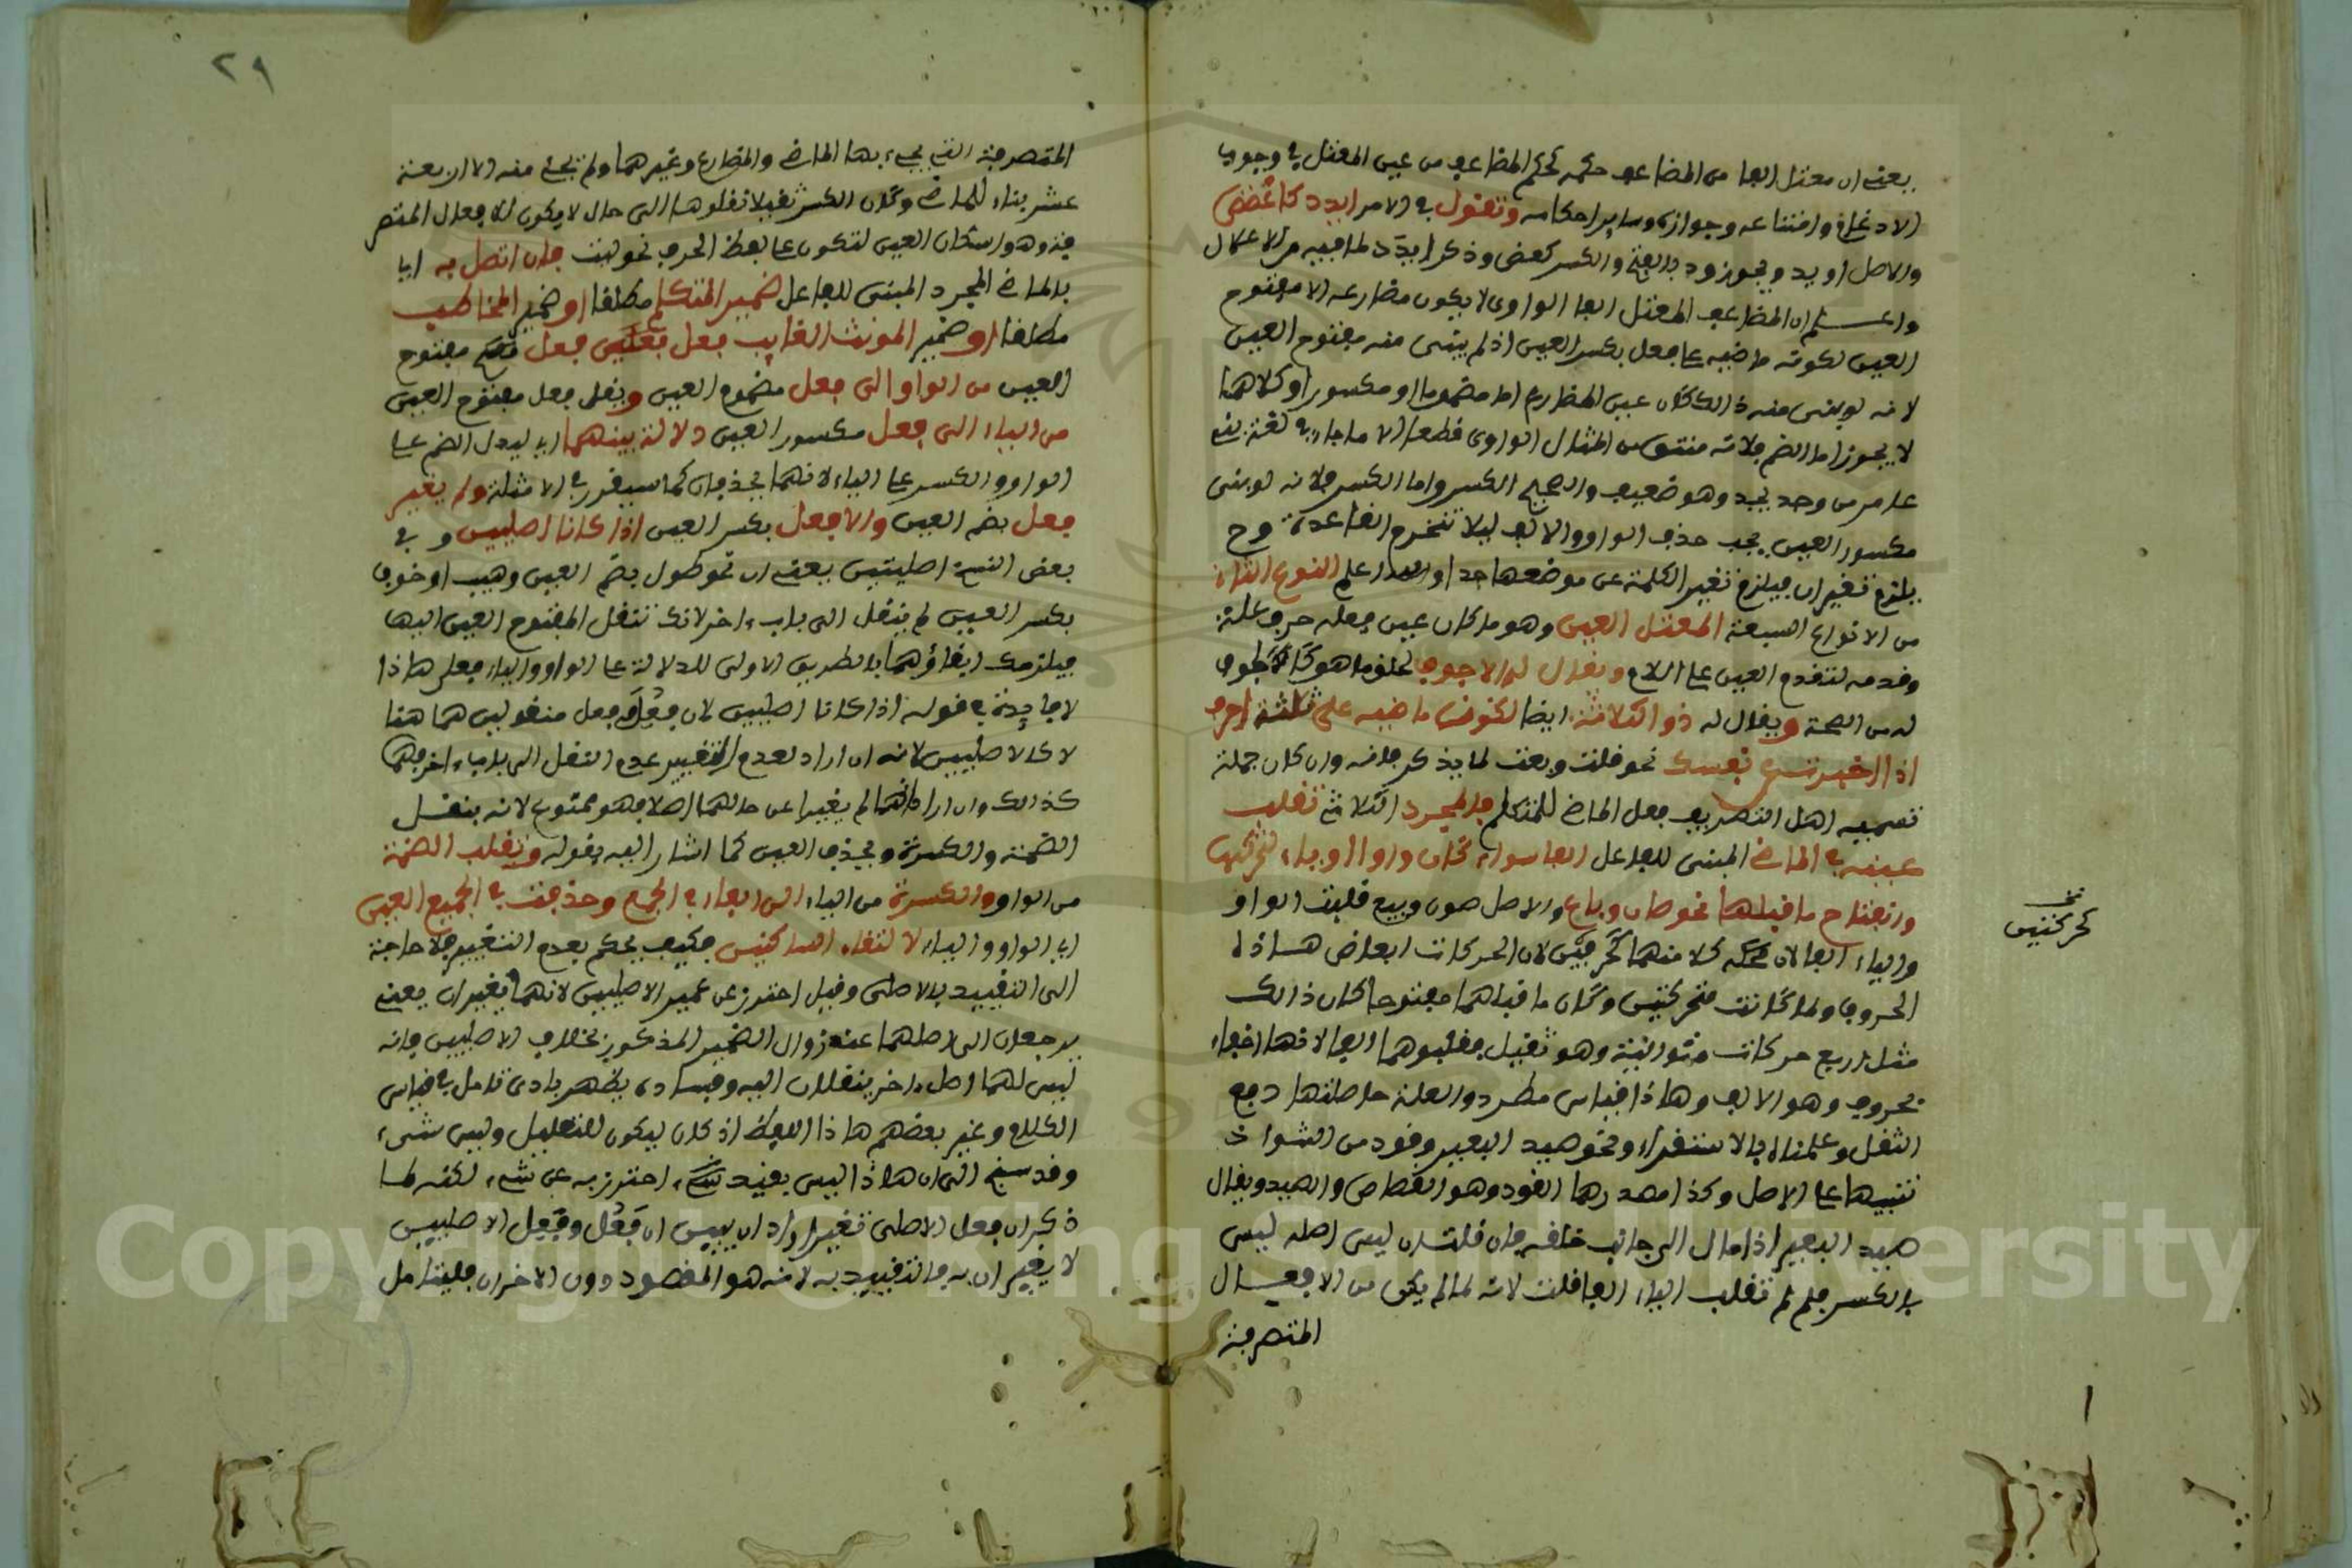 يعني ان معتل الفا من المضاعف حكمه كحكم المضاعف من غير المعتل في وجوب
الادغام وامتناعه وجوازه وساير احكامه وتقول في الامر ايدد كاعضض
والاصل اودد ويجوز ود بالفتح والكسر كعض وذكر ايدد لما فيه من الاعلال
واعلم ان المضاعف المعتل الفا الواوى لا يكون مضارعه الا مفتوح
العين لكون ماضيه على فعل بكسر العين اذ لم يبنى منه مفتوح العين
لانه لو بنى منه ذالك لكان عين المضارع اما مضموما او مكسورا وكلاهما
لا يجوز اما الضم فلانه منتف من المثال الواوى قطعا الا ما جاء في لغة بني
عامر من وجد يجد وهو ضعيف والصحيح الكسر واما الكسر فلانه لو بنى
مكسور العين يجب حذف الواو والالف ليلا تنخرم القاعدة وح
يلزم تغيران فيلزم تغير الكلمة عن موضعها جدا والله اعلم النوع الثاني
من الانواع السبعة المعتل العين وهو ما كان عين فعله حرف علة
وقدمه لتقدم العين على اللام ويقال له الاجوف لخلو ما هو كالجوف
له من الصحة ويقال له ذو الثلاثة ايضا لكون ماضيه على ثلثة احرف
اذا اخبرت عن نفسك نحو قلت وبعت لما يذكر فانه وان كان جملة
تسميه اهل التصريف فعل الماضي للمتكلم فالمجرد الثلاثي تقلب
عينه في الماضي المبنى للفاعل الفا سواء كان واوا او ياء لتحركهما
وانفتاح ما قبلهما نحو صان وباع والاصل صون وبيع قلبت الواو
والياء الفا لان كلا منهما كحركتين لان الحركات ابعاض هاذه
نخ
كحركتين
الحروف ولما كانت متحركتين وكان ما قبلهما مفتوحا كان ذالك
مثل اربع حركات متوالية وهو ثقيل فقلبوهما الفا لانها اخف
حروف وهو الالف وهاذا قياس مطرد والعلة حاصلتها دفع
الثقل وعلمنا بالاستقراء ونحو صيد البعير وقود من الشواذ
تنبيها على الاصل وكذا مصدرهما القود وهو القصاص والصيد ويقال
صيد البعير اذا مال الى جانب خلفه فان قلت ان ليس اصله ليس
بالكسر فلم لم تقلب الياء الفا قلت لانه لما لم يكن من الافعال
المتصرفة
٢٩
المتصرفة التي يجيء بها الماضي والمضارع وغيرهما ولم يجئ منه الا اربعة
عشر بناء للماضي وكان الكسر ثقيلا نقلوها الى حال لا يكون للافعال المتصر
فة وهو اسكان العين لتكون على لفظ الحرف نحو ليت فان اتصل به اى
بالماضي المجرد المبنى للفاعل ضمير المتكلم مطلقا او ضمير المخاطب
مطلقا او ضمير المونث الغايب نقل فعل مفتوح
العين من الواو الى فعل مضموم العين ونقل فعل مفتوح العين
من الياء الى فعل مكسور العين دلالة بينهما اى ليدل الضم على
الواو والكسر على الياء لانهما يحذفان كما سيقرر في الامثلة ولم يغير
فعل بضم العين ولا فعل بكسر العين اذا كانا اصليين و في
بعض النسخ اصليتين يعني ان نحو طول بضم العين وهيب او خوف
بكسر العين لم ينقل الى باب ءاخر لانك تنقل المفتوح العين اليها
فيلزمك ابقاؤهما بالطريق الاولى للدلالة على الواو والياء فعلى هاذا
لا فايدة في قوله اذا كانا اصليين لان فعل وفعل منقولين هما هنا
لا كالاصليين لانه ان اراد بعدم التغيير عدم النقل الى باب ءاخر فهما
كذالك وان اراد انهما لم يغيرا عن حالهما اصلا فهو ممنوع لانه ينقل
الضمة والكسرة ويحذف العين كما اشار اليه بقوله ونقلت الضمة
من الواو والكسرة من الياء الى الفاء في الجمع وحذفت في الجميع العين
اى الواو والياء لالتقاء الساكنين فكيف يحكم بعدم التغيير فلا حاجة
الى التقييد بالاصلى وقيل احترز عن غير الاصليين لانهما يغيران يعني
يرجعان الى اصلهما عند زوال الضمير المذكور بخلاف الاصليين فانه
ليس لهما اصل ءاخر ينقلان اليه وفساده يظهر بادى تامل في قياس
الكلام وغير بعضهم هاذا اللفظ اذ كان ليكون للتعليل وليس شيء
وقد سنح الى ان هاذا ليس بقيد شيء احترز به عن شيء لكنه لما
ذكر ان فعل الاصلى تغير اراد ان يبين ان فعل وفعل الاصليين
لا يغيران به فالتقييد به لانه هو المقصود دون الاخران فليتامل